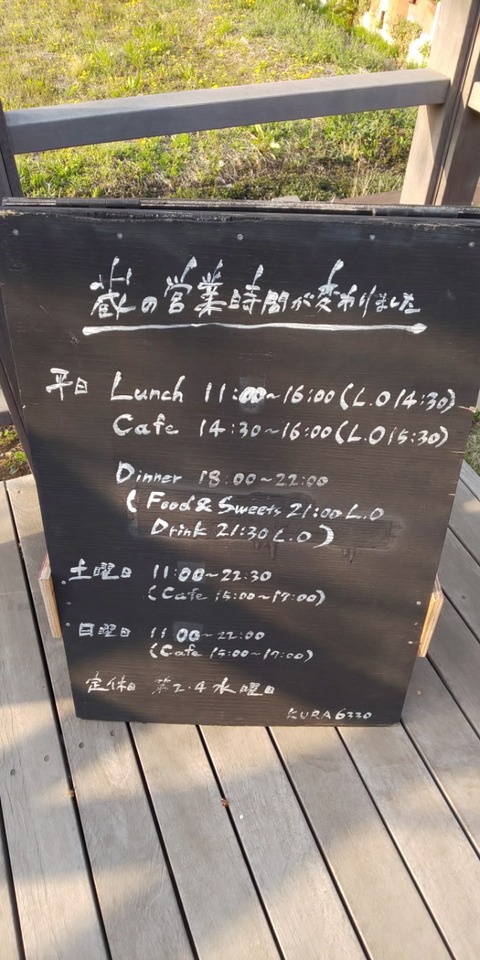 蔵の営業時間が変わりました
平日 Lunch 11:00~16:00(L.O14:30)
Cafe 14:30~16:00(L.O15:30)
Dinner 18:00~22:00
(Food&Sweets 21:00 L.O
Drink 21:30 L.O)
土曜日 11:00~22:30
(Cafe 15:00~17:00)
日曜日 11:00~22:00
(Cafe 15:00~17:00)
定休日 第2・4水曜日
KURA6330